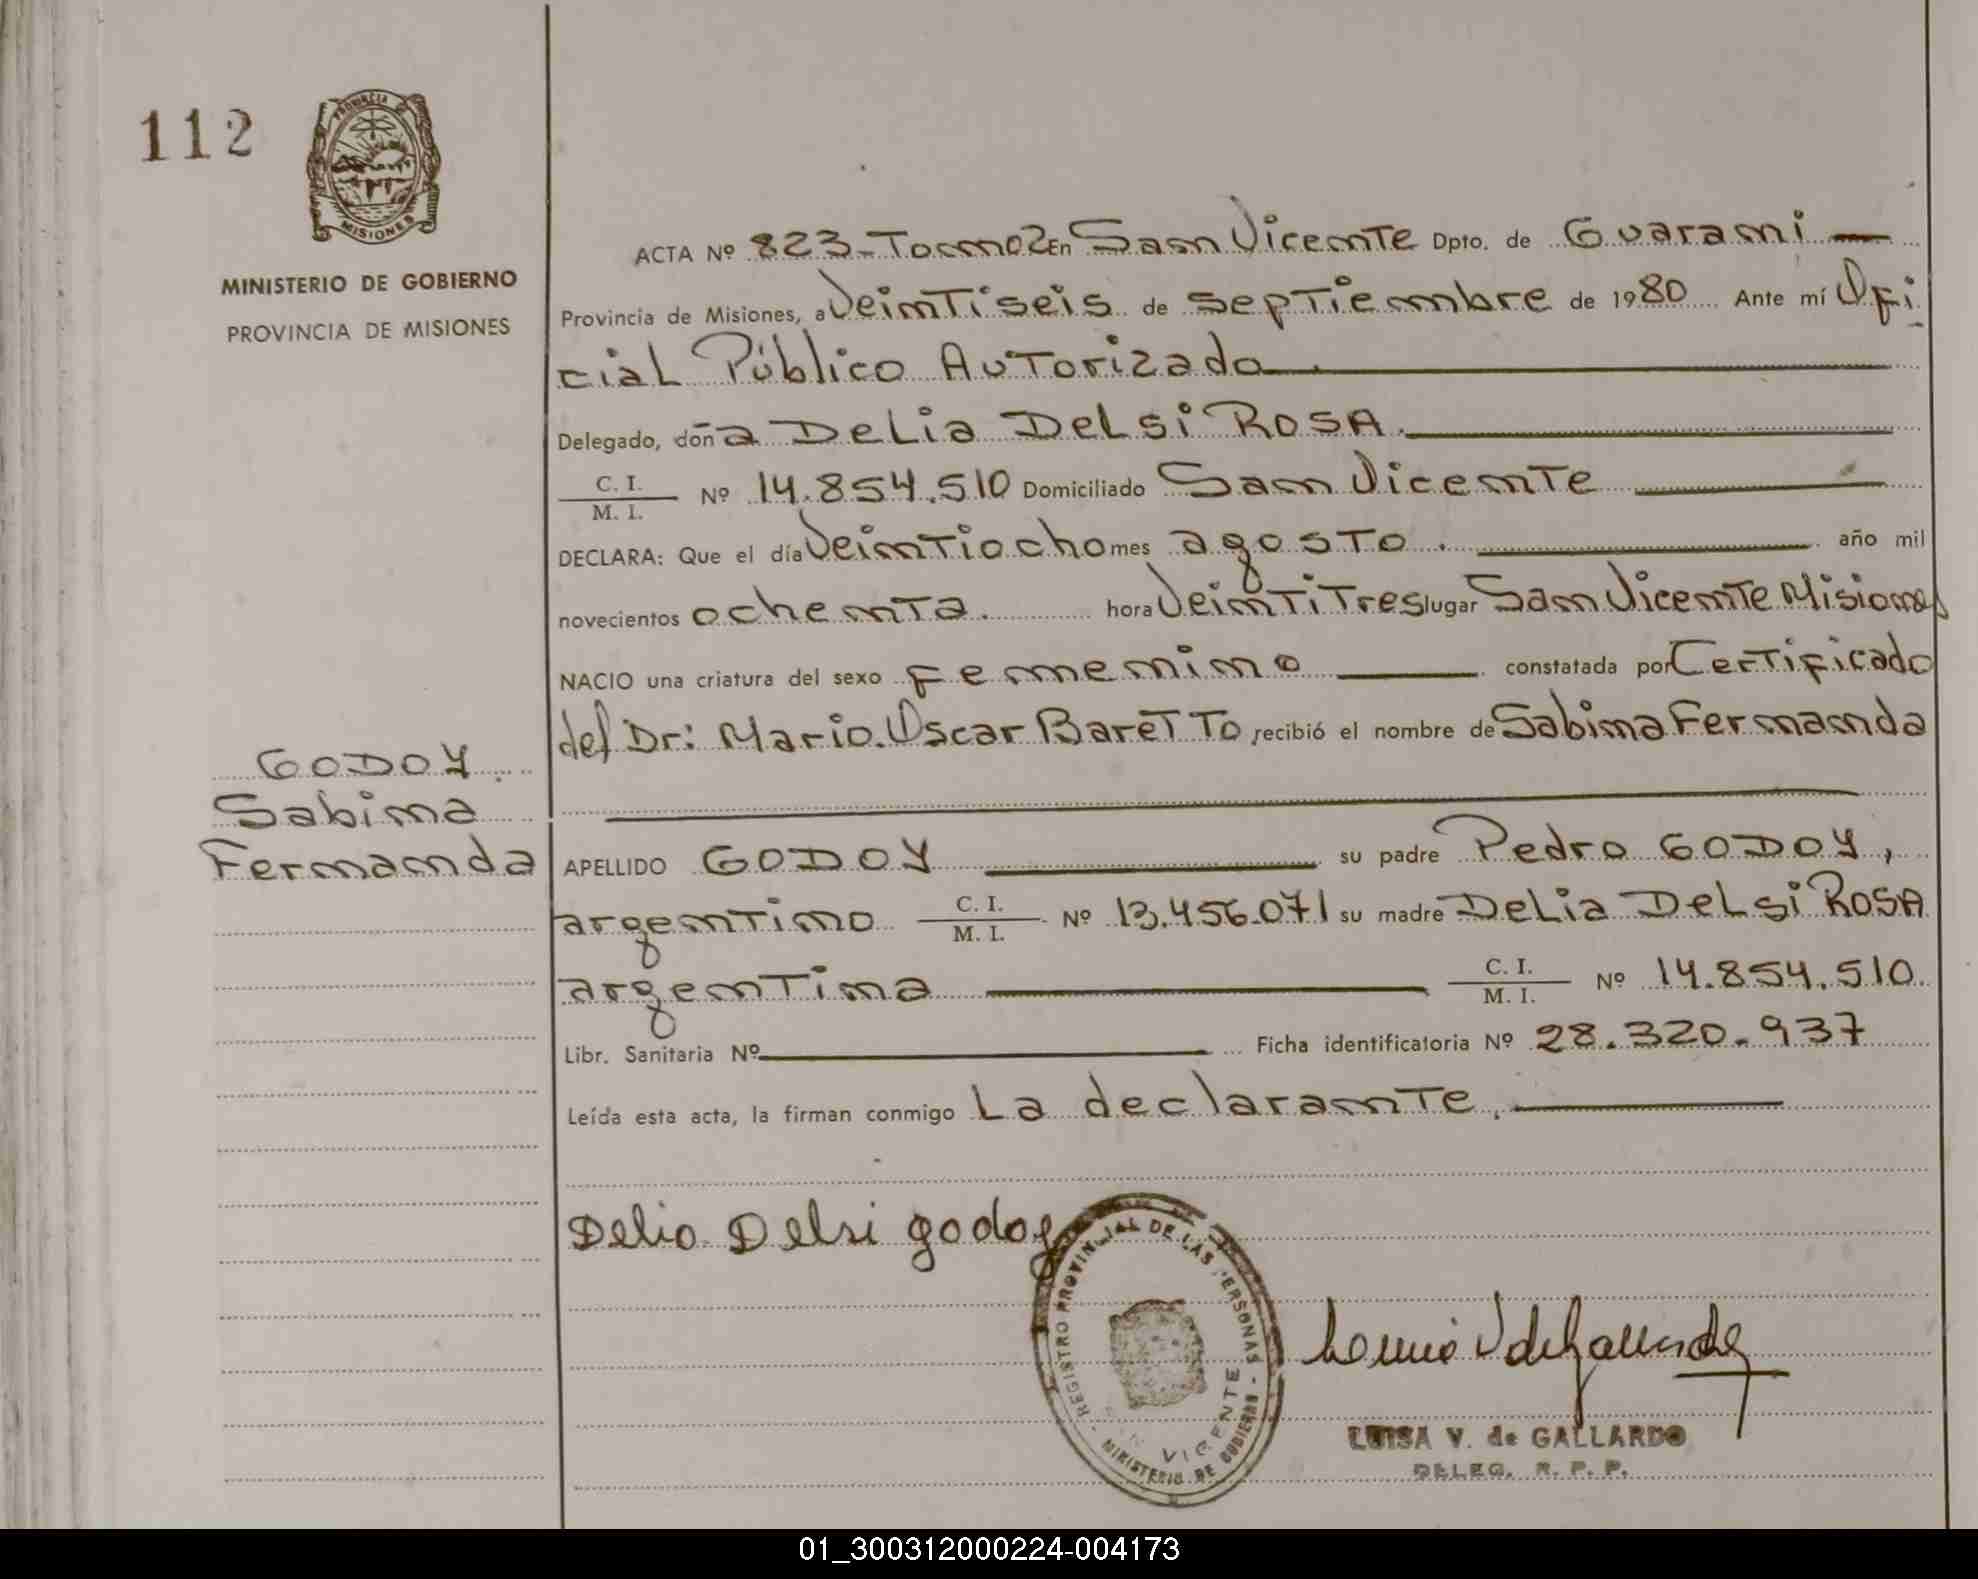 112
PROVINCIA
MISIONES
MINISTERIO DE GOBIERNO
PROVINCIA DE MISIONES
ACTA Nº 823-Tomo2 En San Vicente Dpto. de Guarani
Provincia de Misiones, a Veintiseis de septiembre de 1980 Ante mí Ofi
cial Público Autorizado
Delegado, doña DELia DELsi ROSA.
C. I.
M. I.
Nº 14.854.510 Domiciliado San Vicente
DECLARA: Que el día Veintiocho mes agosto. año mil
novecientos ochenta. hora Veintitres lugar San Vicente Misiones
NACIO una criatura del sexo femenino constatada por Certificado
del Dr: Mario. Oscar Baretto recibió el nombre de Sabina Fernanda
GODOY.
Sabina
Fernanda
APELLIDO GODOY su padre Pedro GODOY,
argentino C. I. Nº 13.456.071 su madre DELia DELsi ROSA
M. I.
argentina C. I. Nº 14.854.510.
M. I.
Libr. Sanitaria Nº Ficha identificatoria Nº 28.320.937
Leída esta acta, la firman conmigo La declarante.
Delia Delsi godoy
REGISTRO PROVINCIAL DE LAS PERSONAS - MINISTERIO DE GOBIERNO -
VICENTE
LUISA V. de GALLARDO
DELEG. R. P. P.
01_300312000224-004173